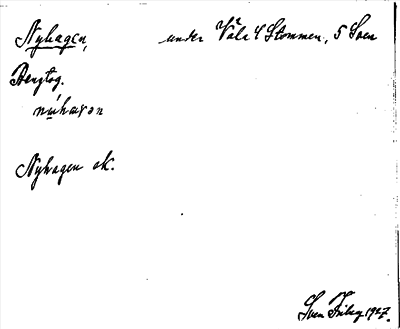 Nyhagen, under Våle 4 Stommen, 5 Sven
Bergtog.
nýhaɤan
Nyhagen ek.
Sven Friberg 1927.